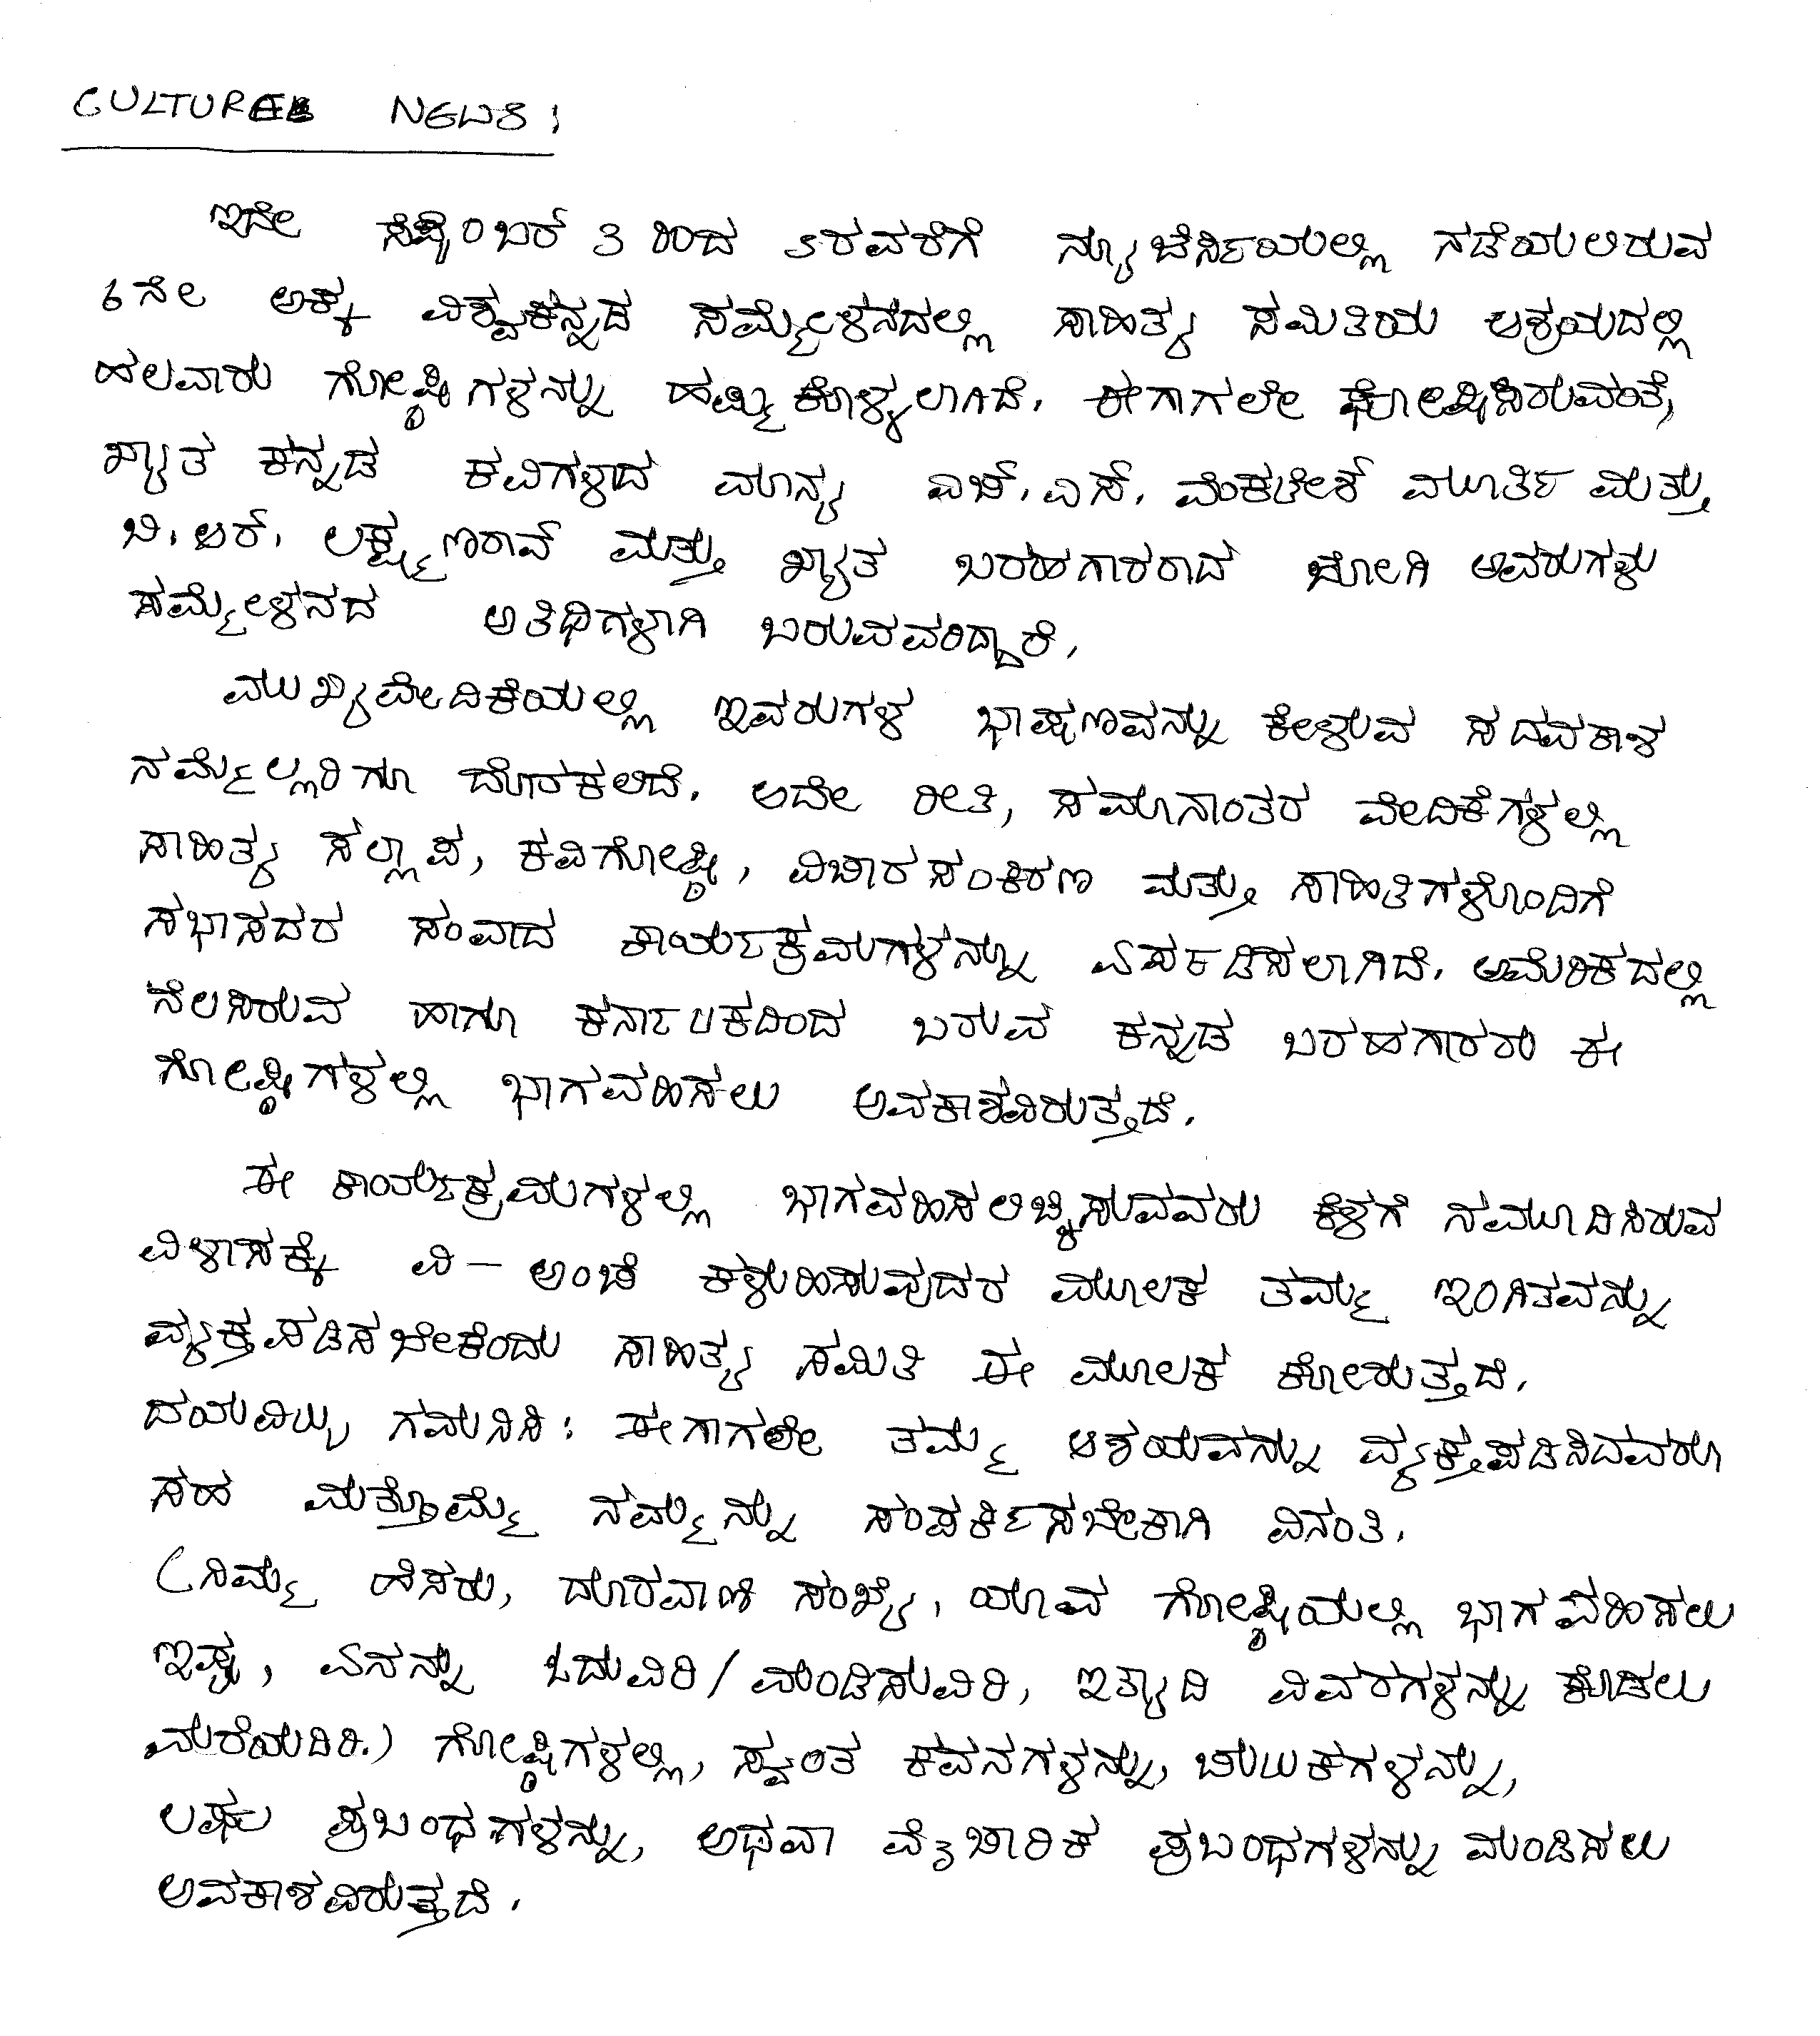 CULTURE NEWS:
ಇದೇ ಸೆಪ್ಟೆಂಬರ್ 3 ರಿಂದ 5ರವರೆಗೆ ನ್ಯೂಜೆರ್ಸಿಯಲ್ಲಿ ನಡೆಯಲಿರುವ
6ನೇ ಅಕ್ಕ ವಿಶ್ವಕನ್ನಡ ಸಮ್ಮೇಳನದಲ್ಲಿ ಸಾಹಿತ್ಯ ಸಮಿತಿಯ ಆಶ್ರಯದಲ್ಲಿ
ಹಲವಾರು ಗೋಷ್ಠಿಗಳನ್ನು ಹಮ್ಮಿಕೊಳ್ಳಲಾಗಿದೆ. ಈಗಾಗಲೇ ಘೋಷಿಸಿರುವಂತೆ,
ಖ್ಯಾತ ಕನ್ನಡ ಕವಿಗಳಾದ ಮಾನ್ಯ ಎಚ್.ಎಸ್. ವೆಂಕಟೇಶ್ ಮೂರ್ತಿ ಮತ್ತು
ಬಿ.ಆರ್. ಲಕ್ಷ್ಮಣರಾವ್ ಮತ್ತು ಖ್ಯಾತ ಬರಹಗಾರರಾದ ಜೋಗಿ ಅವರುಗಳು
ಸಮ್ಮೇಳನದ ಅತಿಥಿಗಳಾಗಿ ಬರುವವರಿದ್ದಾರೆ.
ಮುಖ್ಯವೇದಿಕೆಯಲ್ಲಿ ಇವರುಗಳ ಭಾಷಣವನ್ನು ಕೇಳುವ ಸದವಕಾಶ
ನಮ್ಮೆಲ್ಲರಿಗೂ ದೊರಕಲಿದೆ. ಅದೇ ರೀತಿ, ಸಮಾನಾಂತರ ವೇದಿಕೆಗಳಲ್ಲಿ
ಸಾಹಿತ್ಯ ಸಲ್ಲಾಪ, ಕವಿಗೋಷ್ಠಿ, ವಿಚಾರಸಂಕಿರಣ ಮತ್ತು ಸಾಹಿತಿಗಳೊಂದಿಗೆ
ಸಭಾಸದರ ಸಂವಾದ ಕಾರ್ಯಕ್ರಮಗಳನ್ನು ಏರ್ಪಡಿಸಲಾಗಿದೆ. ಅಮೆರಿಕದಲ್ಲಿ
ನೆಲಸಿರುವ ಹಾಗೂ ಕರ್ನಾಟಕದಿಂದ ಬರುವ ಕನ್ನಡ ಬರಹಗಾರರು ಈ
ಗೋಷ್ಠಿಗಳಲ್ಲಿ ಭಾಗವಹಿಸಲು ಅವಕಾಶವಿರುತ್ತದೆ.
ಈ ಕಾರ್ಯಕ್ರಮಗಳಲ್ಲಿ ಭಾಗವಹಿಸಲಿಚ್ಛಿಸುವವರು ಕೆಳಗೆ ನಮೂದಿಸಿರುವ
ವಿಳಾಸಕ್ಕೆ ವಿ-ಅಂಚೆ ಕಳುಹಿಸುವುದರ ಮೂಲಕ ತಮ್ಮ ಇಂಗಿತವನ್ನು
ವ್ಯಕ್ತಪಡಿಸಬೇಕೆಂದು ಸಾಹಿತ್ಯ ಸಮಿತಿ ಈ ಮೂಲಕ ಕೋರುತ್ತದೆ.
ದಯವಿಟ್ಟು ಗಮನಿಸಿ: ಈಗಾಗಲೇ ತಮ್ಮ ಆಶಯವನ್ನು ವ್ಯಕ್ತಪಡಿಸಿದವರೂ
ಸಹ ಮತ್ತೊಮ್ಮೆ ನಮ್ಮನ್ನು ಸಂಪರ್ಕಿಸಬೇಕಾಗಿ ವಿನಂತಿ.
(ನಿಮ್ಮ ಹೆಸರು, ದೂರವಾಣಿ ಸಂಖ್ಯೆ, ಯಾವ ಗೋಷ್ಠಿಯಲ್ಲಿ ಭಾಗವಹಿಸಲು
ಇಷ್ಟ, ಏನನ್ನು ಓದುವಿರಿ/ಮಂಡಿಸುವಿರಿ, ಇತ್ಯಾದಿ ವಿವರಗಳನ್ನು ಕೊಡಲು
ಮರೆಯದಿರಿ.) ಗೋಷ್ಠಿಗಳಲ್ಲಿ, ಸ್ವಂತ ಕವನಗಳನ್ನು, ಚುಟುಕಗಳನ್ನು,
ಲಘು ಪ್ರಬಂಧಗಳನ್ನು, ಅಥವಾ ವೈಚಾರಿಕ ಪ್ರಬಂಧಗಳನ್ನು ಮಂಡಿಸಲು
ಅವಕಾಶವಿರುತ್ತದೆ.